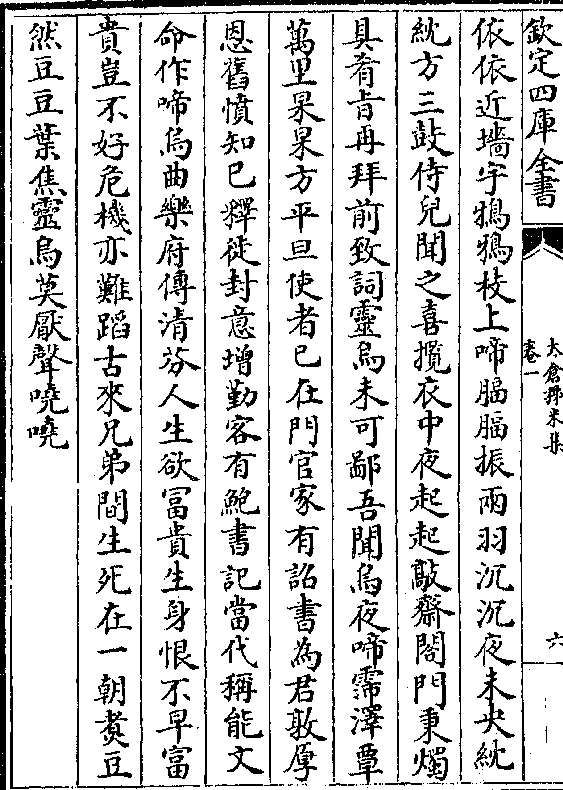 欽定四庫全書
太倉稊米集
卷一
六
依依近墻宇鵶鵶枝上啼腷腷振兩羽沉沉夜未央紞
紞方三鼓侍兒聞之喜攬衣中夜起起敲齋閤門秉燭
具肴旨再拜前致詞靈烏未可鄙吾聞烏夜啼霈澤覃
萬里杲杲方平旦使者已在門官家有詔書為君敦厚
恩舊憤知已釋徙封意增勤客有鮑書記當代稱能文
命作啼烏曲樂府傳清芬人生欲冨貴生身恨不早富
貴豈不好危機亦難蹈古來兄弟間生死在一朝煑豆
然豆豆葉焦靈烏莫厭聲嘵嘵